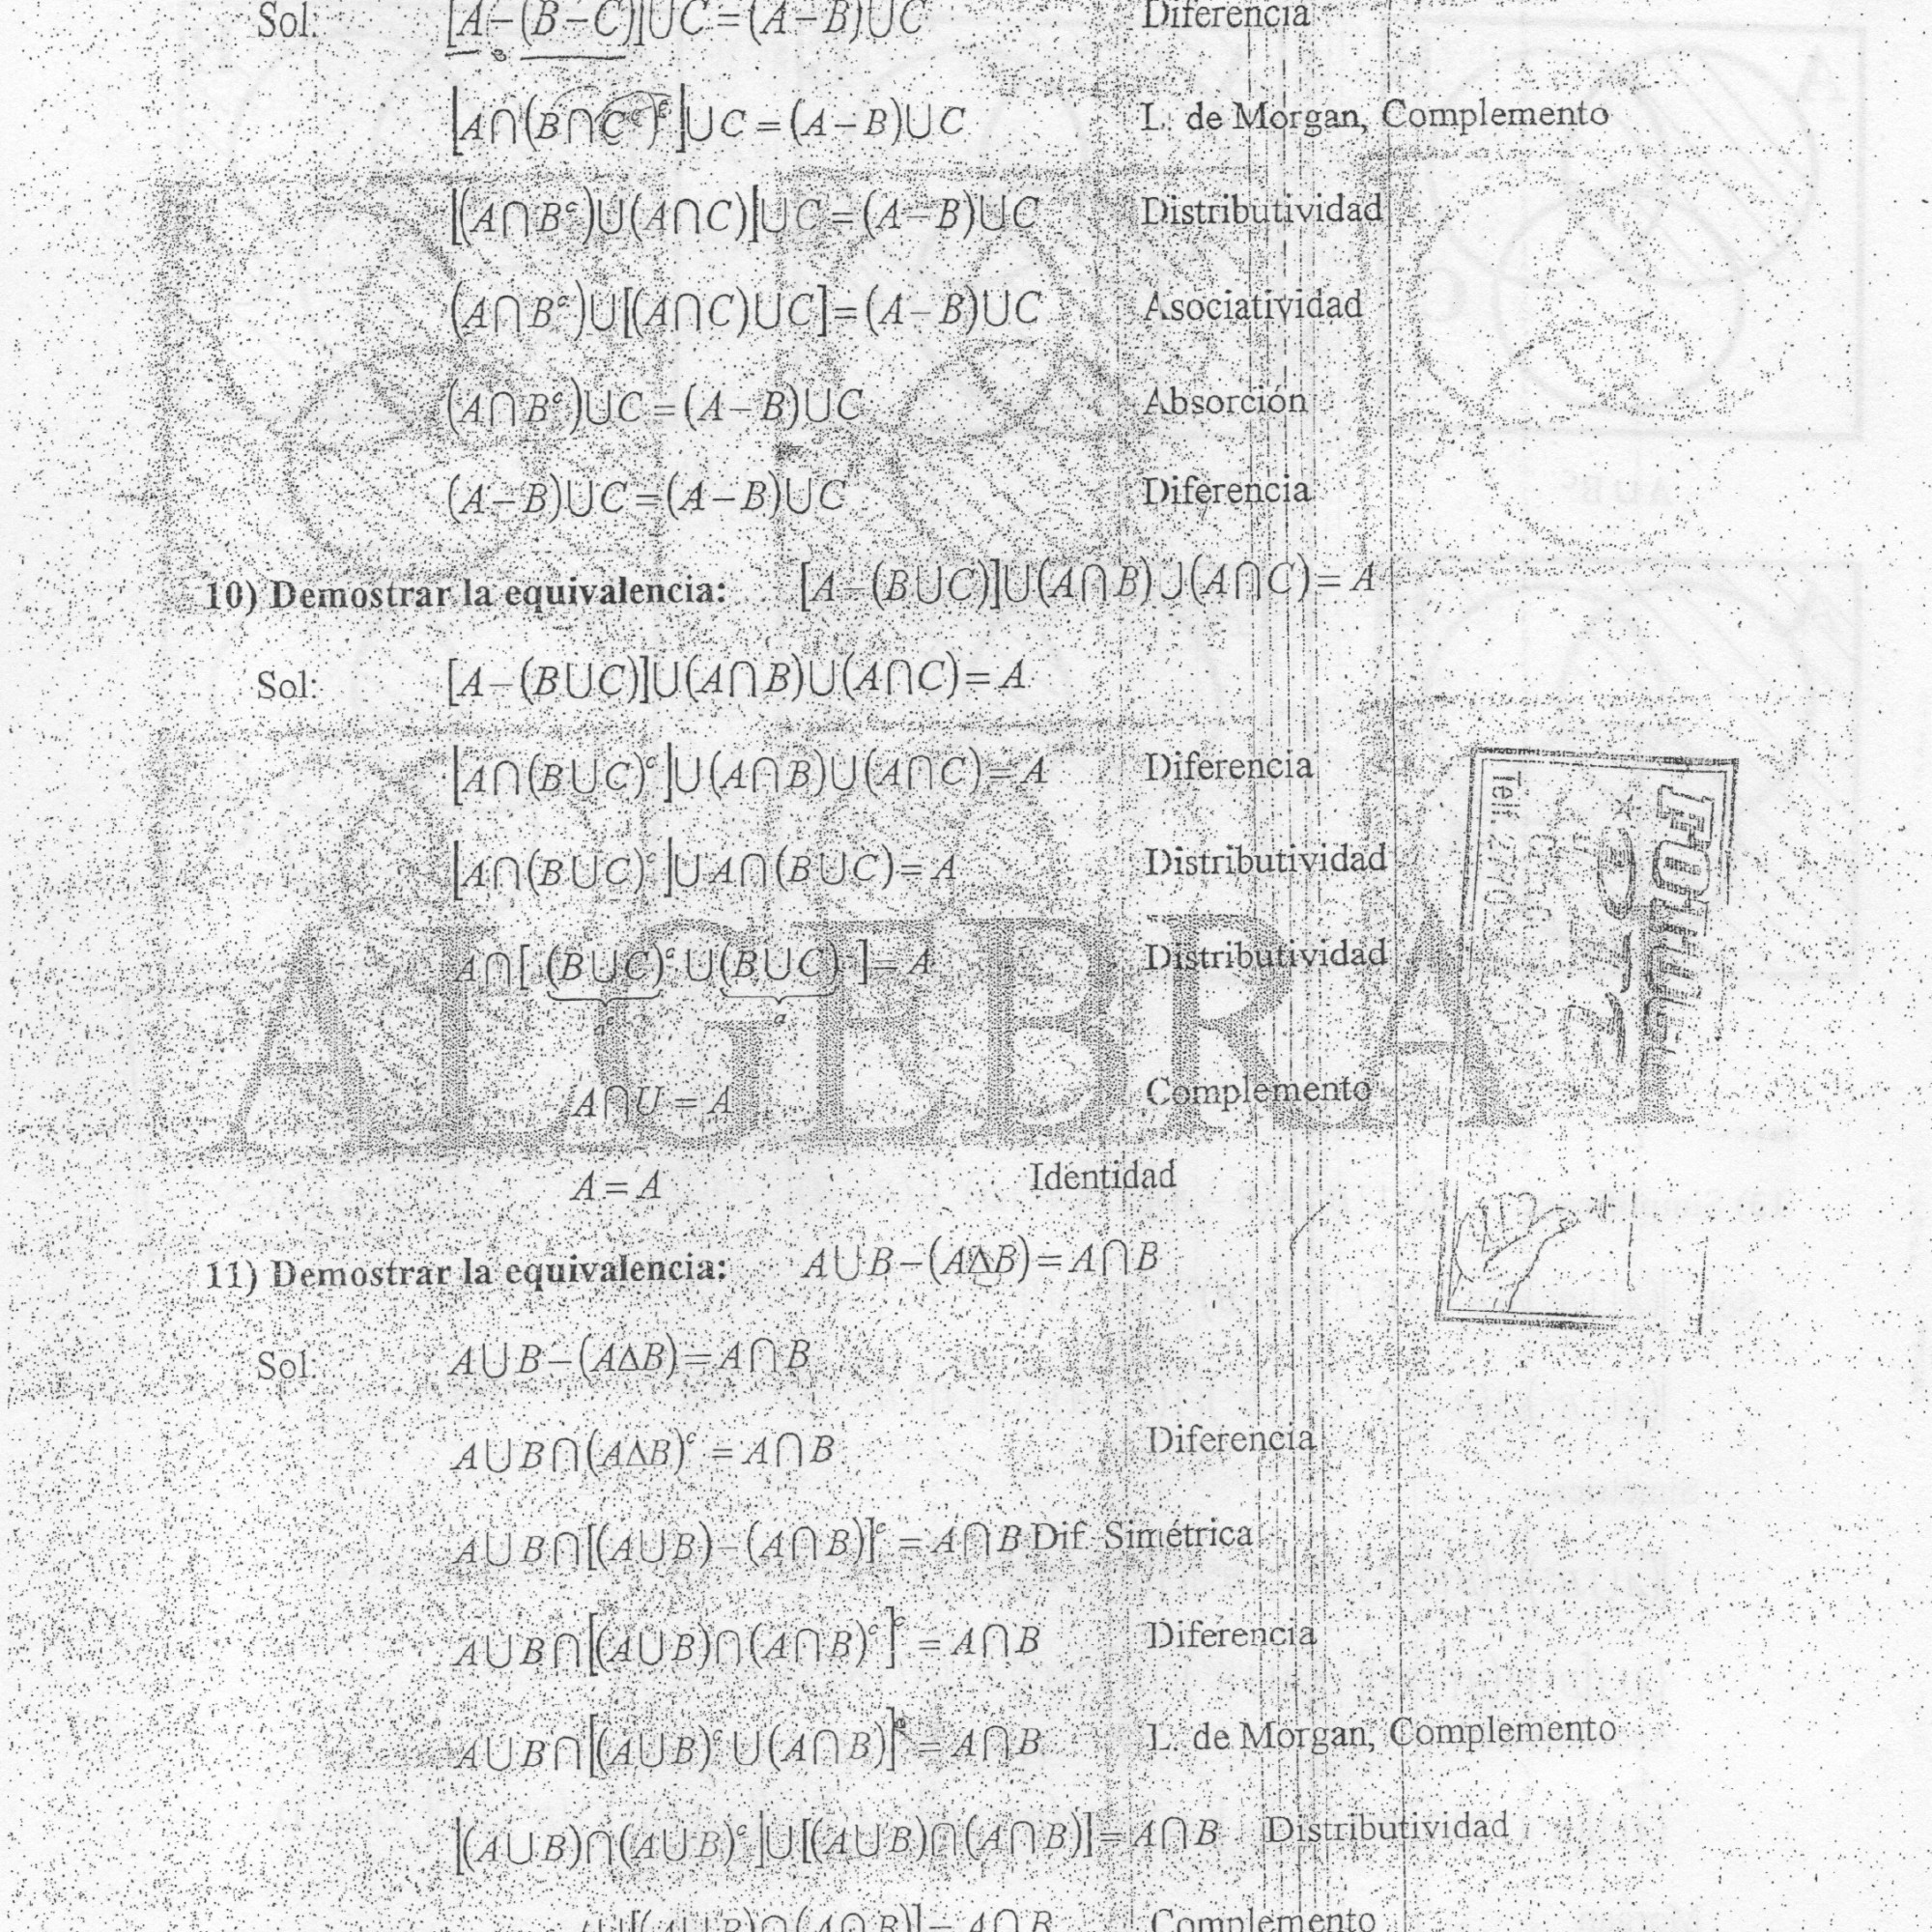 Sol: [A-(B-C)]∪C=(A-B)∪C Diferencia
[A∩(B∩Cᶜ)ᶜ]∪C=(A-B)∪C L. de Morgan, Complemento
[(A∩Bᶜ)∪(A∩C)]∪C=(A-B)∪C Distributividad
(A∩Bᶜ)∪[(A∩C)∪C]=(A-B)∪C Asociatividad
(A∩Bᶜ)∪C=(A-B)∪C Absorción
(A-B)∪C=(A-B)∪C Diferencia
10) Demostrar la equivalencia: [A-(B∪C)]∪(A∩B)∪(A∩C)=A
Sol: [A-(B∪C)]∪(A∩B)∪(A∩C)=A
[A∩(B∪C)ᶜ]∪(A∩B)∪(A∩C)=A Diferencia
[A∩(B∪C)ᶜ]∪A∩(B∪C)=A Distributividad
A∩[(B∪C)ᶜ∪(B∪C)]=A Distributividad
aᶜ a
ALGEBRA I
A∩U=A Complemento
A=A Identidad
11) Demostrar la equivalencia: A∪B-(AΔB)=A∩B
Sol: A∪B-(AΔB)=A∩B
A∪B∩(AΔB)ᶜ=A∩B Diferencia
A∪B∩[(A∪B)-(A∩B)]ᶜ=A∩B Dif. Simétrica
A∪B∩[(A∪B)∩(A∩B)ᶜ]ᶜ=A∩B Diferencia
A∪B∩[(A∪B)ᶜ∪(A∩B)]=A∩B L. de Morgan, Complemento
[(A∪B)∩(A∪B)ᶜ]∪[(A∪B)∩(A∩B)]=A∩B Distributividad
∪[(A∪B)∩(A∩B)]=A∩B Complemento